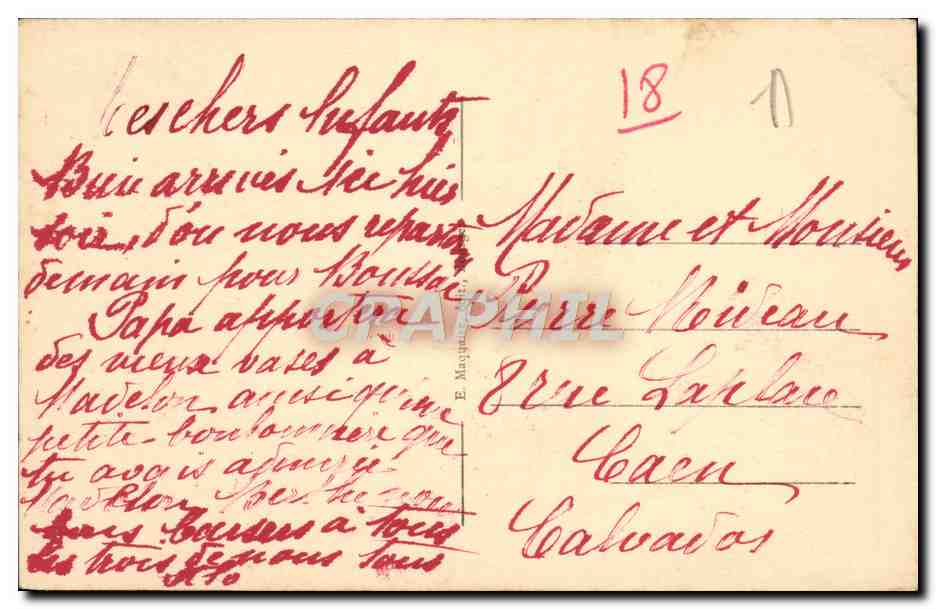 Mes chers Enfants
Bien arrivés ici hier
soir, d'où nous repartons
demain pour Boussac
Papa apportera
des vieux vases à
Madelon ainsi qu'une
petite bonbonnière que
tu avais admiré
Madelon
bons baisers à tous
les trois de nous tous
18
Madame et Monsieur
Pierre Mideau
8 rue Laplace
Caen
Calvados
CPAPHIL